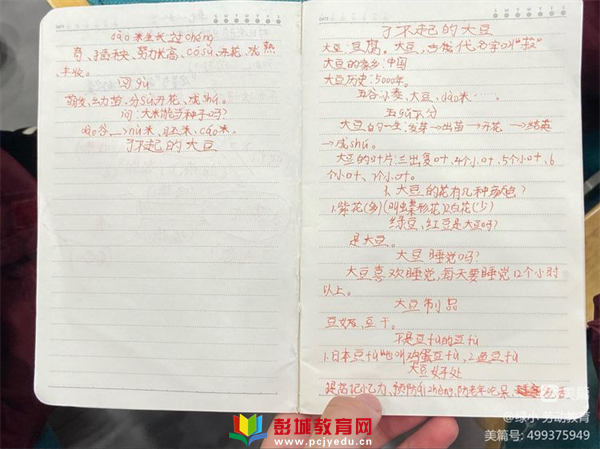 dào米生长过chéng
育、插秧、努力长高、có sú、开花、成熟
丰收。
问gǔ
萌发、出力苗、分sù、开花、成shú。
问：大米能当种子吗？
dào谷 → nù米、玉米、cāo米。
了不起的大豆
了不起的大豆
大豆：豆腐。大豆，古代名字叫“菽”
大豆的家乡：中国
大豆历史：5000年。
五谷：小麦、大豆、dào米……
五gǔ不分
大豆的一生：发芽→出苗→开花→结荚
→成shú。
大豆的叶片：三出复叶、4个小叶、5个小叶、6
个小叶、7个小叶。
1、大豆的花有几种颜色？
1.紫花(多)(叫蝶形花)2.白花(少)
绿豆、红豆是大豆吗？
是大豆。
大豆睡觉吗？
大豆喜欢睡觉，每天要睡觉12个小时
以上。
大豆制品
豆奶、豆干。
不是豆fǔ的豆fǔ
1.日本豆fǔ也叫鸡蛋豆fǔ、2.鱼豆fǔ
大豆好处
提高记忆力、预防
彭城教育网
www.pcjyedu.cn
@绿小劳动教育
美篇号：499375949